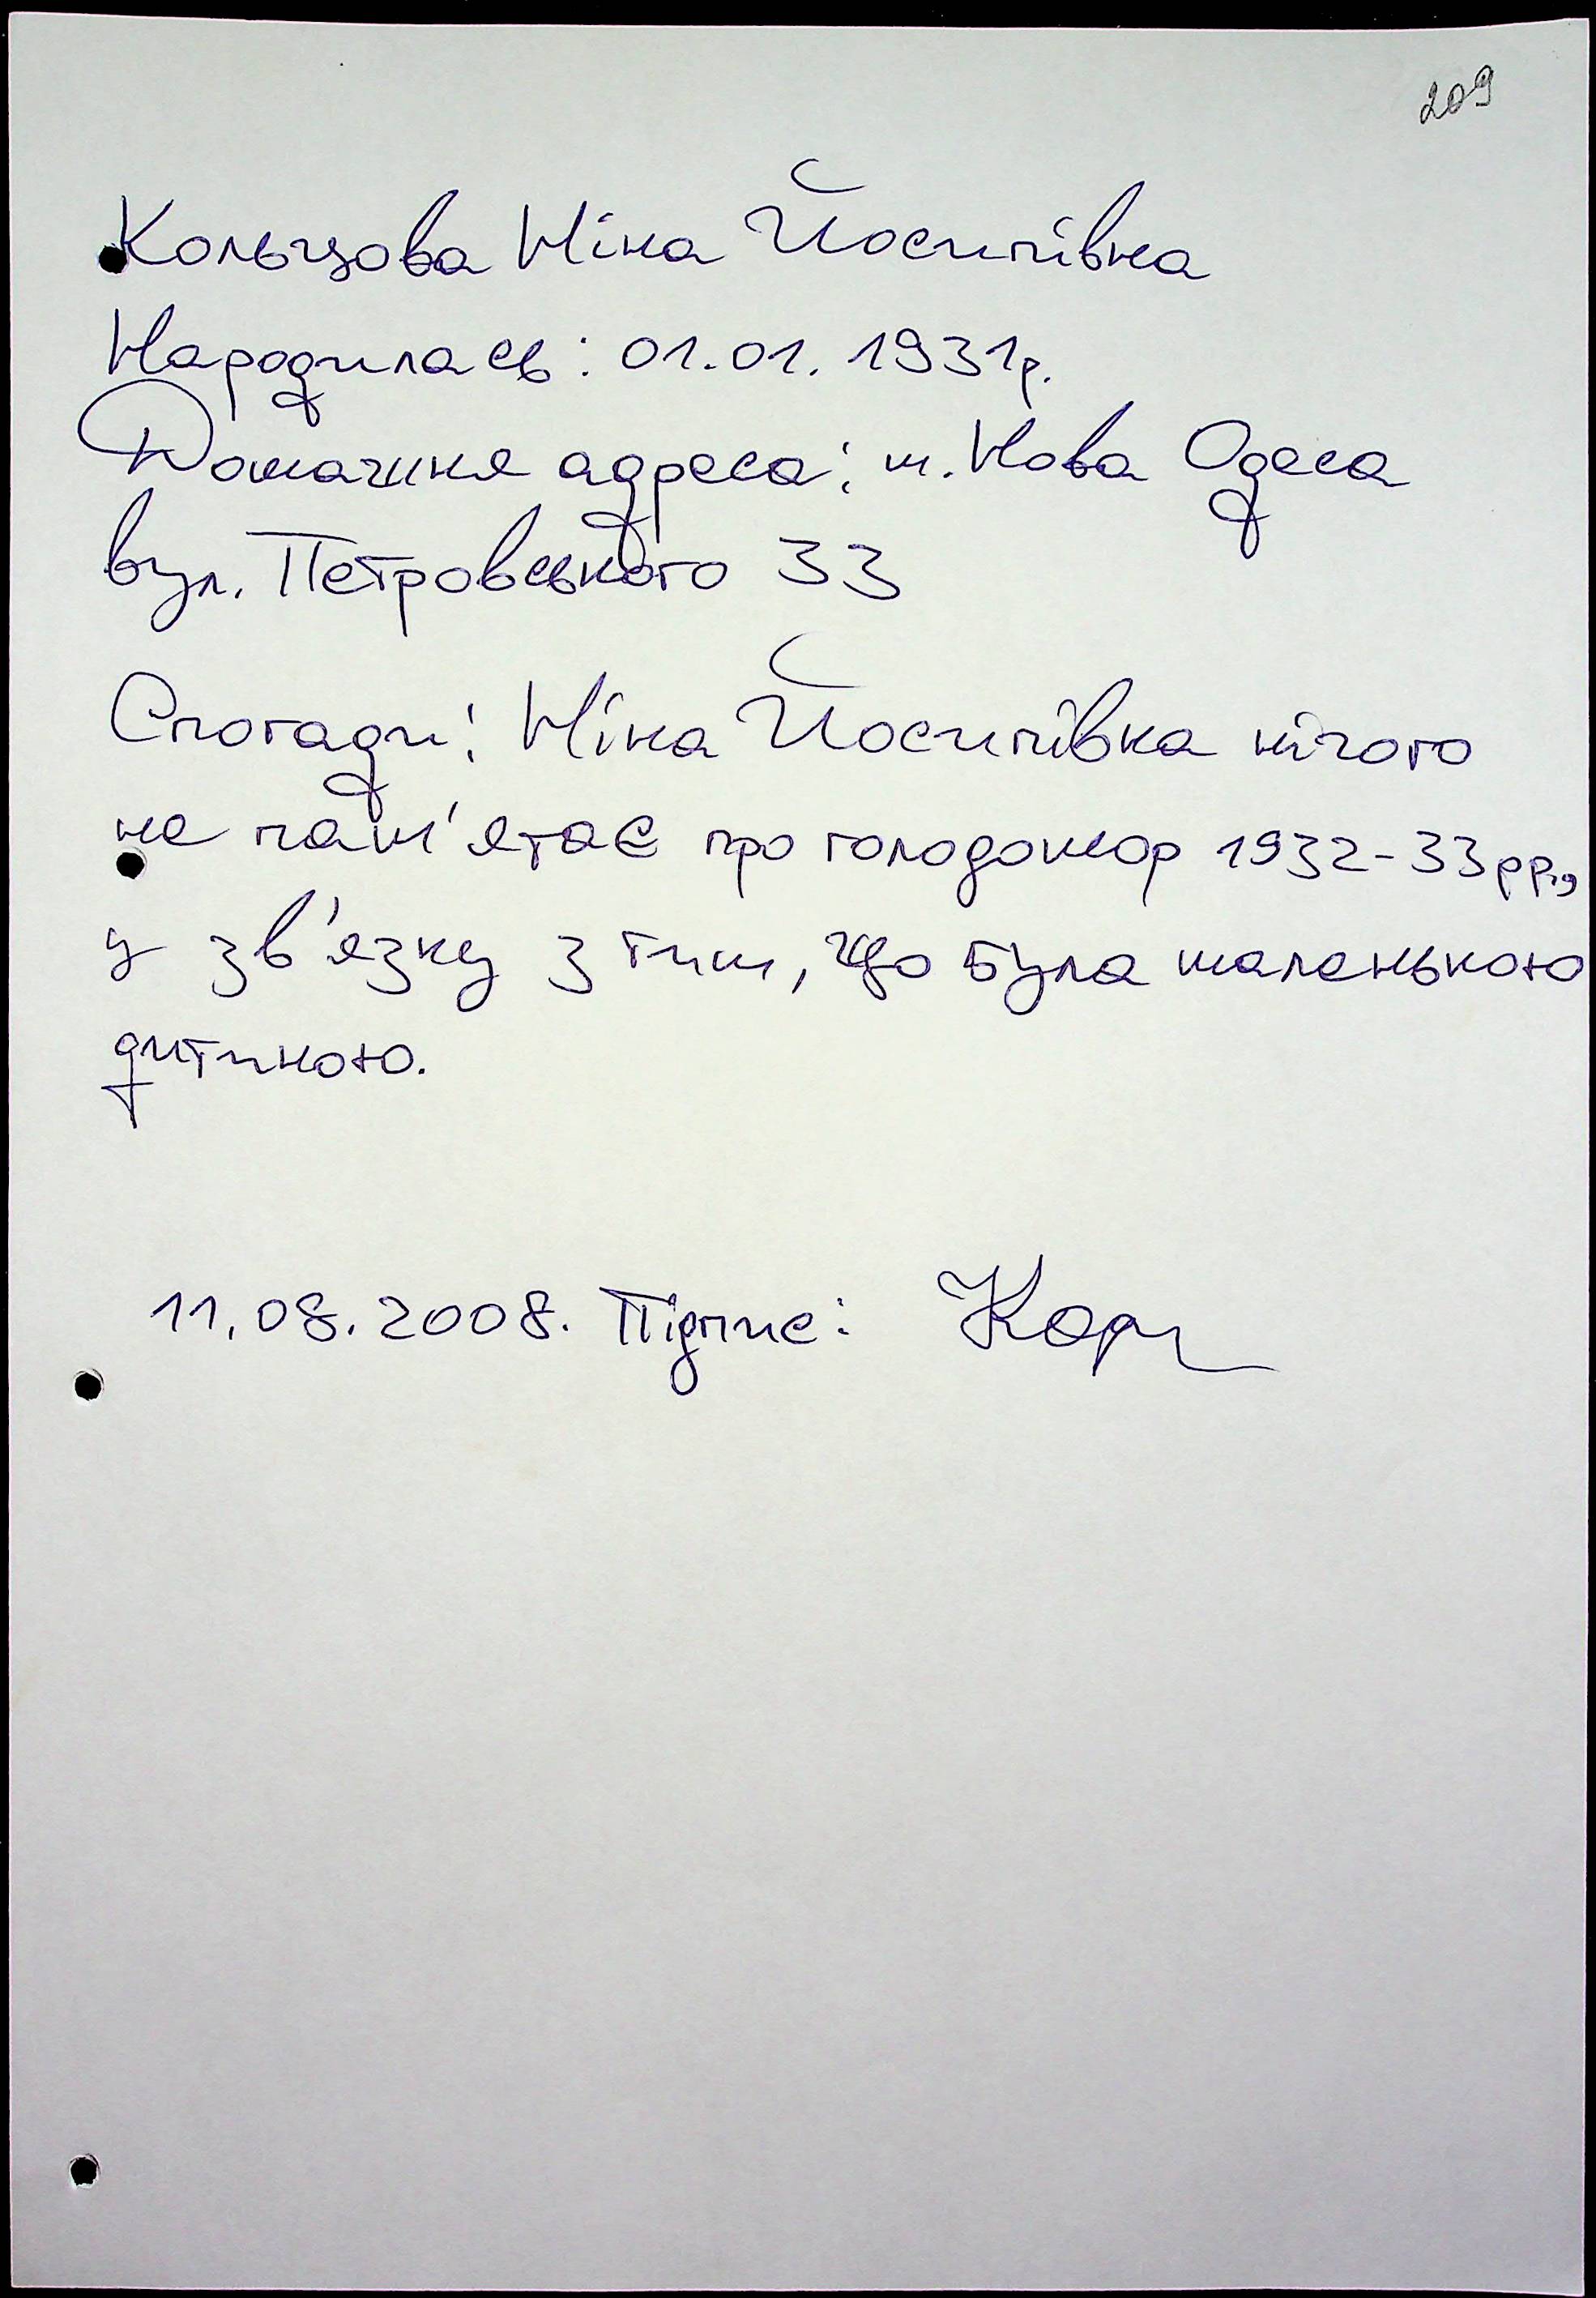 209
Кольцова Ніна Йосипівна
Народилась: 01.01.1931р.
Домашня адреса: м. Нова Одеса
вул. Петровського 33
Спогади: Ніна Йосипівна нічого
не пам'ятає про голодомор 1932-33рр.,
у зв'язку з тим, що була маленькою
дитиною.
11.08.2008. Підпис: